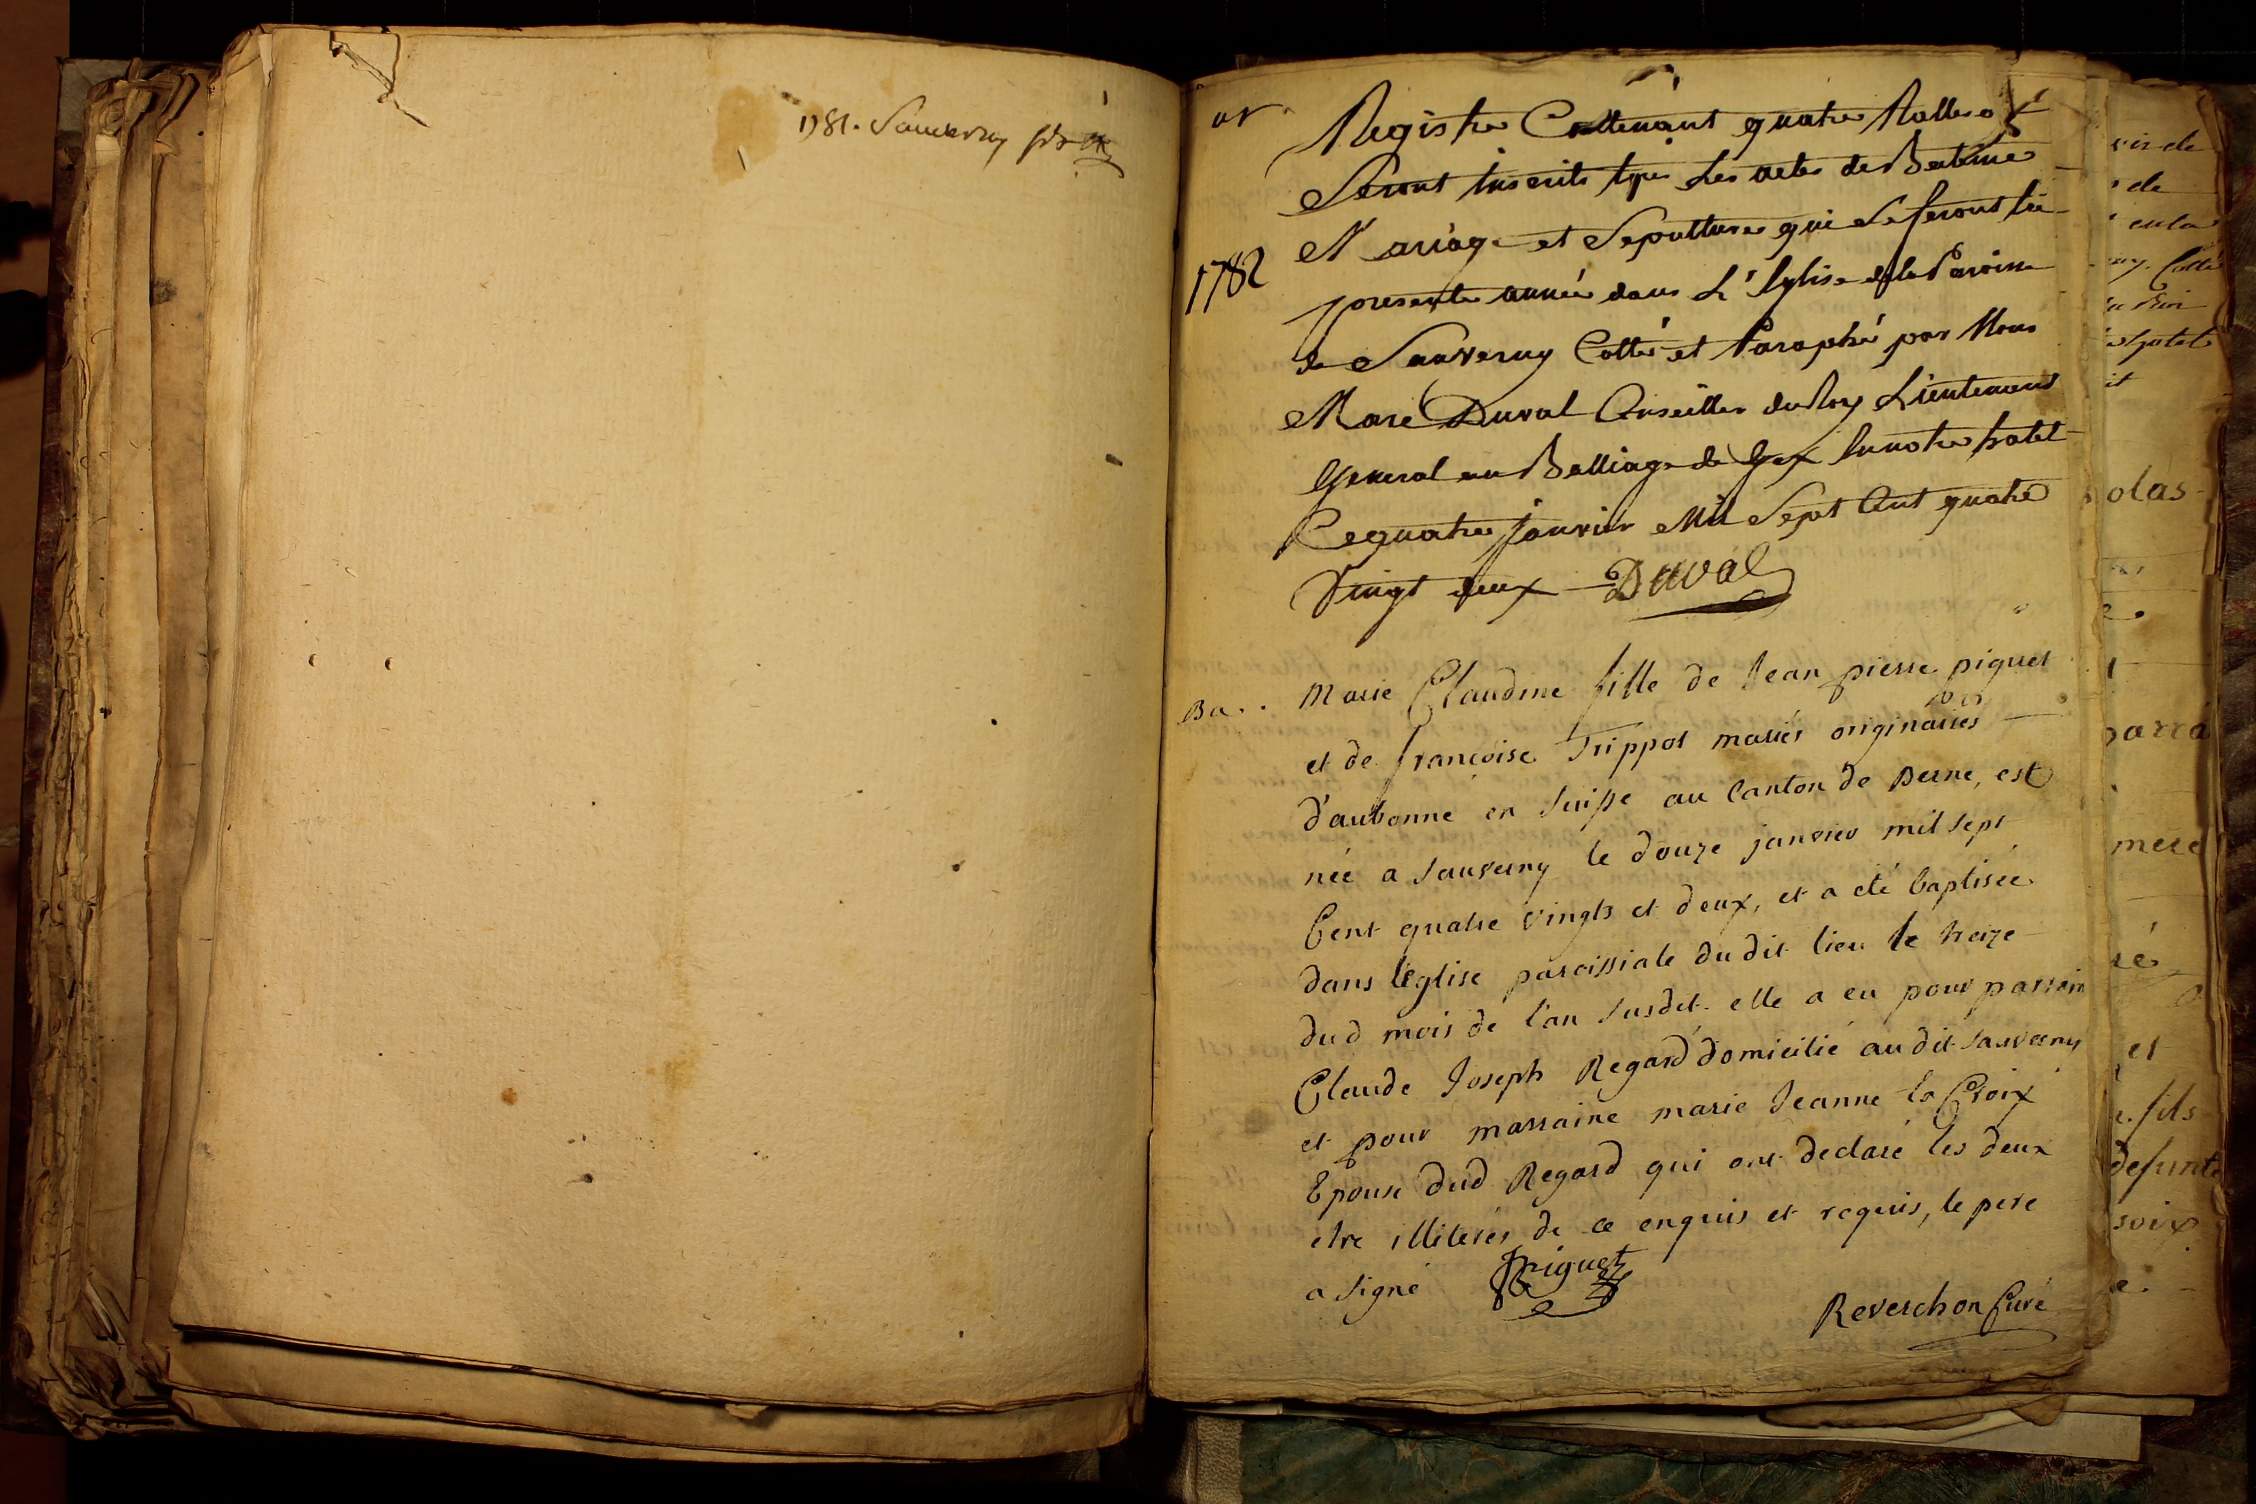 1781. Sauverny
Registre Contenant quatre Rolles ou
Seront inscrits tous Les actes de Bateme
Mariage et Sepultures qui se feront la
1782
presente année dans L'Eglise de la Paroisse
de Sauverny Cotté et Paraphé par Nous
Marc Duval Conseiller du Roy Lieutenant
General au Balliage de Gex En notre hotel
Ce quatre janvier Mil Sept Cent quatre
Vingt deux Duval
Ba..
Marie Claudine fille de Jean pierre piguet
et de françoise Trippot mariés originaires
d'aubonne en Suisse au Canton de Berne, est
née a Sauverny le douze janvier mil sept
Cent quatre vingts et deux, et a été baptisée
dans l'église paroissiale du dit lieu le treize
dud mois de l'an susdit. elle a eu pour parrain
Claude Joseph Regard domicilié au dit Sauverny
et pour marraine marie Jeanne la Croix
Epouse dud Regard qui ont declaré les deux
etre illiterés de ce enquis et requis, le pere
a signé Piguet
Reverchon Curé
vir de
de
en la
Cotté
olas
mere
et
fils
defunte